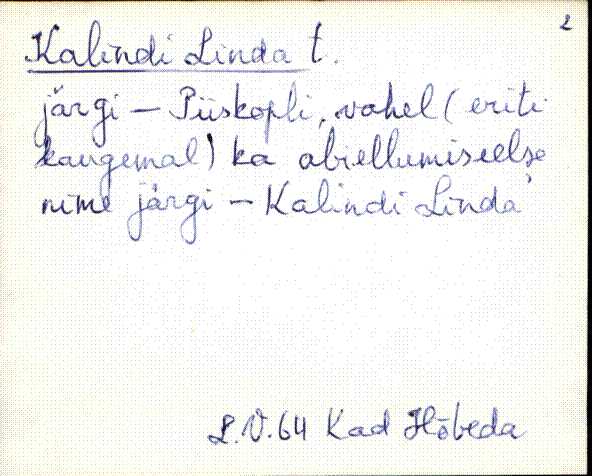 2
Kalindi Linda t.
järgi – Piiskopli, vahel (eriti
kaugemal) ka abiellumiseelse
nime järgi – Kalindi Linda
L.V.64 Kad Hõbeda